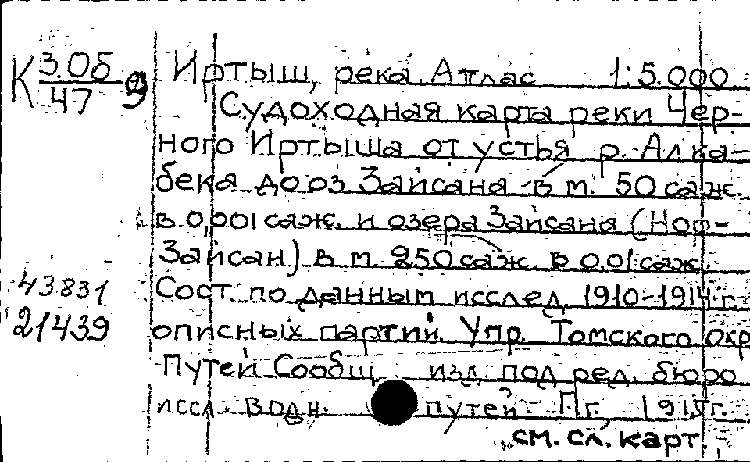 К 3.Об 9
47
Иртыш, река. Атлас 1:5.000
Судоходная карта реки Чер-
ного Иртыша от устья р. Алка-
бека до оз Зайсана в м. 50 саж.
в 0,001 саж. и озера Зайсана (Нор-
Зайсан) в м 250 саж в 0.01 саж.
43831
Сост. по данным исслед. 1910-1914 г.
21439
описных партий. Упр. Томского окр
Путей Сообщ изд под ред. бюро
иссл. водн. путей Пг,
см. сл. карт.